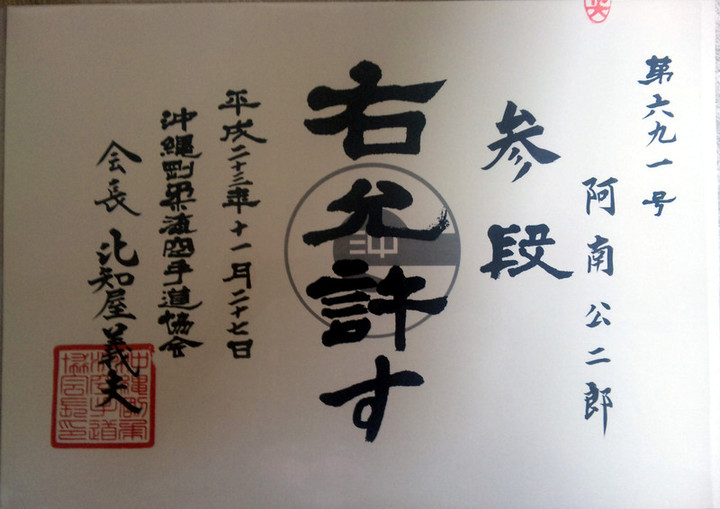 第六九一号
阿南公二郎
参段
右允許す
平成二十三年十一月二十七日
沖縄剛柔流空手道協会
会長 比知屋義夫
沖縄剛柔
流空手道
協会長印
沖